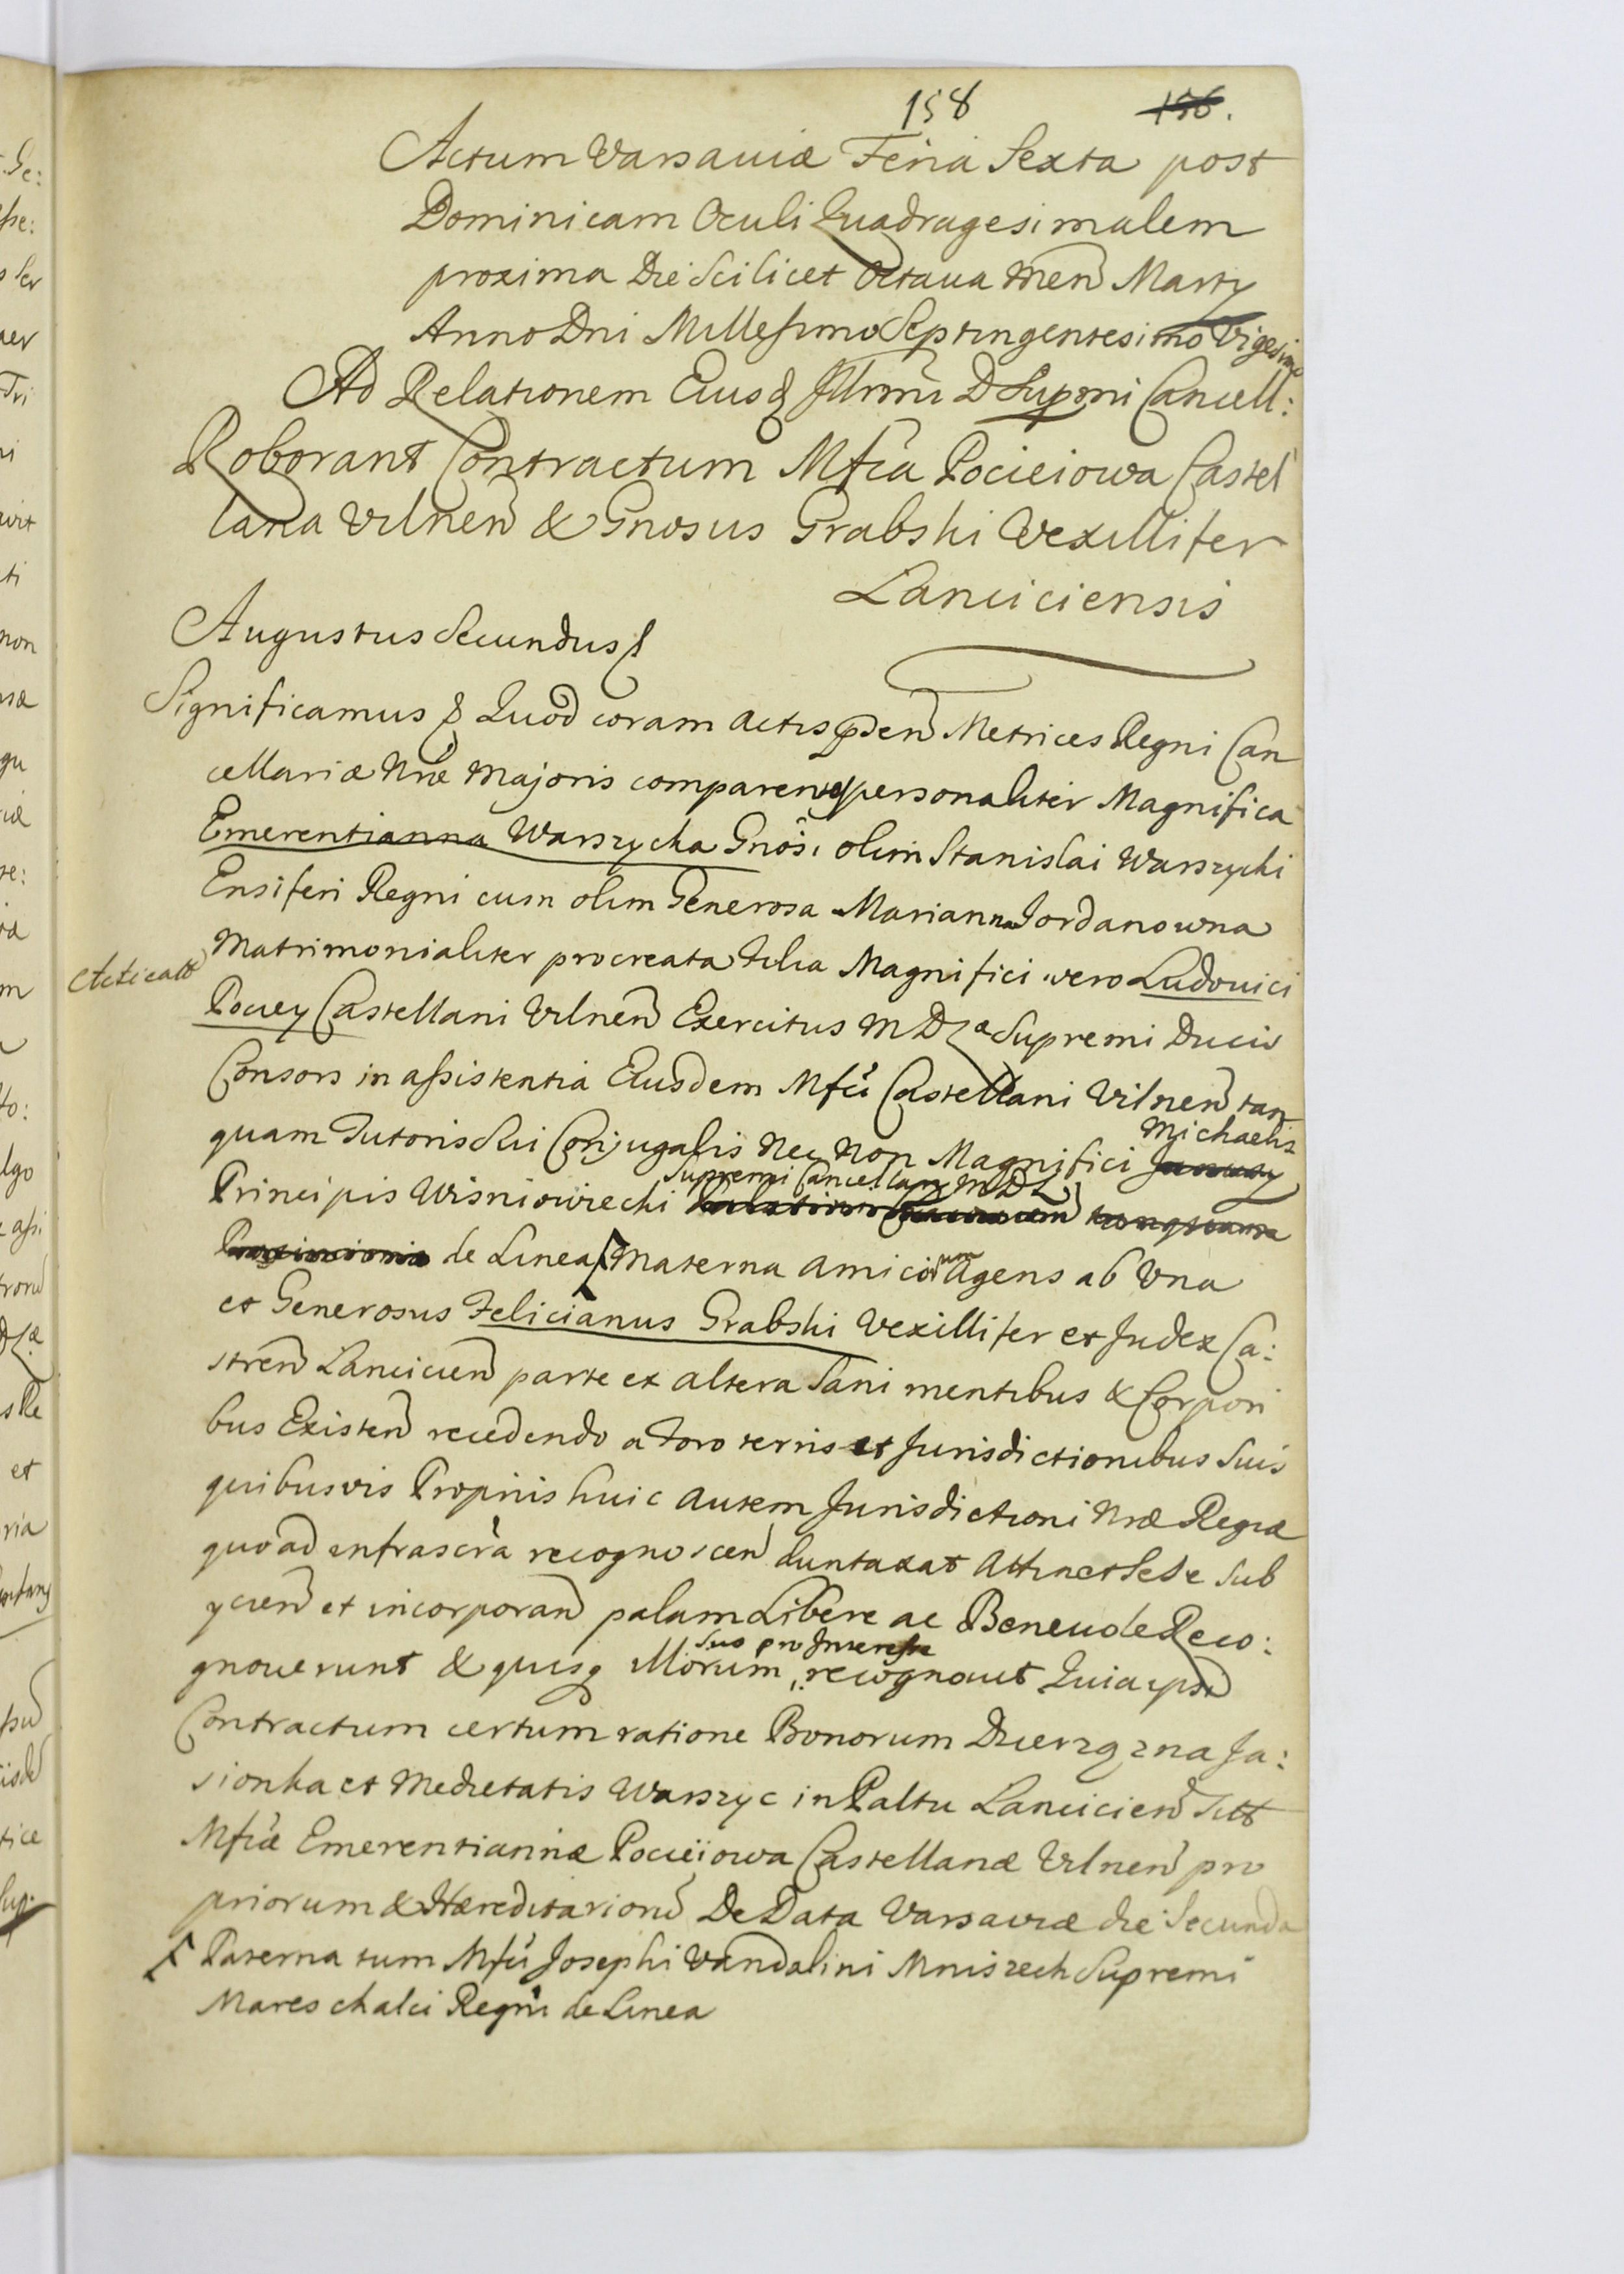 158 156.
Actum Varsaviæ Feria Sexta post
Dominicam Oculi Quadragesimalem
proxima Die Scilicet Octava Men̄ Marty
Anno Dni Millesimo Septingentesimo Vigesimo
Ad Relationem Eiusq Illrmi D Supmi Cancell:
Roborant Contractum Mfca Pocieiowa Castel
lana Vilnen̄ & Gnosus Grabski Vexillifer
Lanciciensis
Augustus Secundus
Significamus Quod coram Actis pden̄ Metrices Regni Can
cellariæ Nræ Majoris comparentes personaliter Magnifica
Emerentianna Warszycka Gnosi olim Stanislai Warszycki
Ensiferi Regni cum olim Generosa Marianna Jordanowna
Matrimonialiter procreata Filia Magnifici vero Ludovici
Pociey Castellani Vilnen̄ Exercitus M D L Supremi Ducis
Consors in assistentia Eiusdem Mfci Castellani Vilnen̄ tan
quam Tutoris Sui Conjugalis Nec Non Magnifici Michaelis
Principis Wisniowiecki Supremi Cancellary M D L
de Linea Materna Amicorum Agens ab Una
et Generosus Felicianus Grabski Vexillifer et Judex Ca:
stren̄ Lancicien̄ parte ex altera Sani mentibus & Corpori
bus Existen̄ recedendo a Foro terris et Jurisdictionibus Suis
quibusvis Proprijs huic autem Jurisdictioni Nræ Regiæ
quoad infrascra recognoscen̄ duntaxat Attinet Sese Sub
ycien̄ et incorporan̄ palam Libere ac Benevole Reco:
gnoverunt & quisq Illorum Suo pro Interesse recognovit Quia ipsi
Contractum certum ratione Bonorum Dzierzązna Ja:
sionka et Medietatis Warszyc in Paltu Lancicien̄ Sitt
Mfcæ Emerentiannæ Pocieiowa Castellanæ Vilnen̄ pro
priorum & Hæreditariorū De Data Varsaviæ die Secunda
Paterna tum Mfci Josephi Vandalini Mniszech Supremi
Mareschalci Regni de Linea
Acticatt